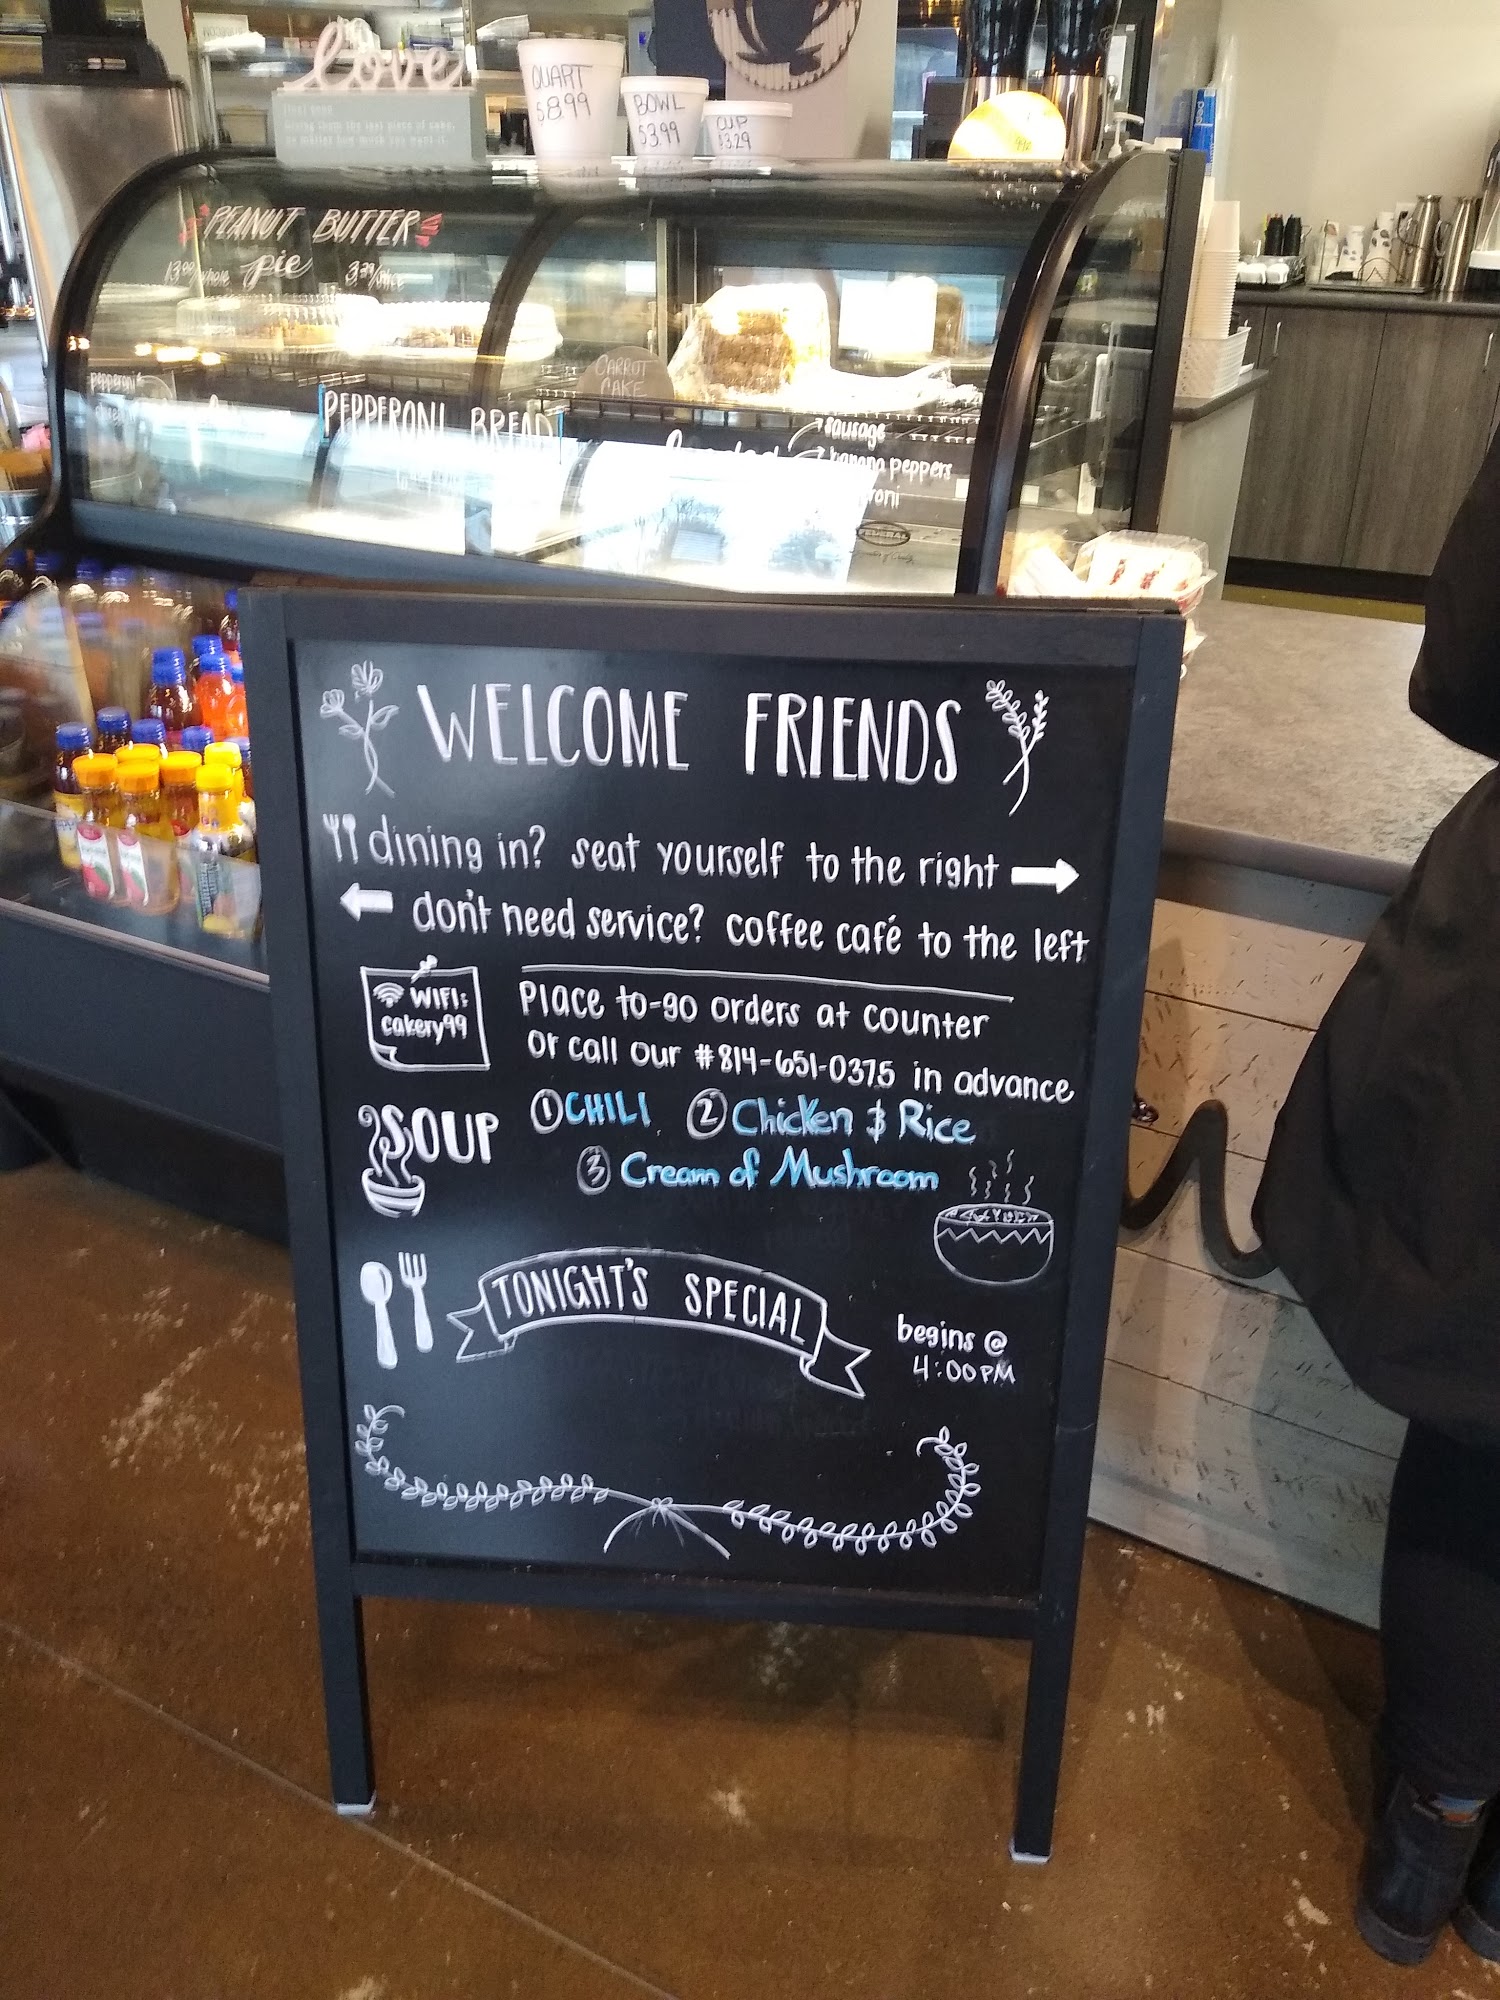 love
QUART
$8.99
BOWL
$3.99
CUP
$3.29
PEANUT BUTTER
pie
13.00 whole
3.79/slice
CARROT
CAKE
pepperoni
PEPPERONI BREAD
sausage
banana peppers
FEDERAL
WELCOME FRIENDS
dining in? seat yourself to the right
don't need service? coffee café to the left
WIFI:
cakery99
Place to-go orders at counter
or call our #814-651-0375 in advance
SOUP
① CHILI ② Chicken & Rice
③ Cream of Mushroom
TONIGHT'S SPECIAL
begins @
4:00PM